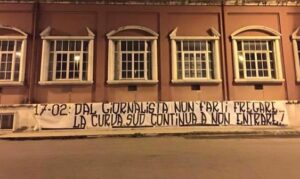 17-02: DAL GIORNALISTA NON FARTI FREGARE
LA CURVA SUD CONTINUA A NON ENTRARE!